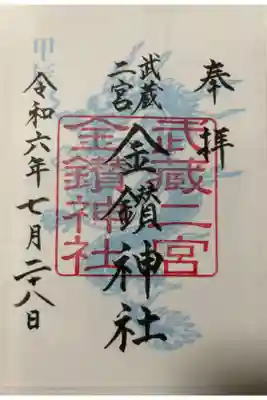 奉拝
武蔵
二宮
金鑚神社
武蔵二宮
金鑚神社
令和六年七月二十八日
甲辰